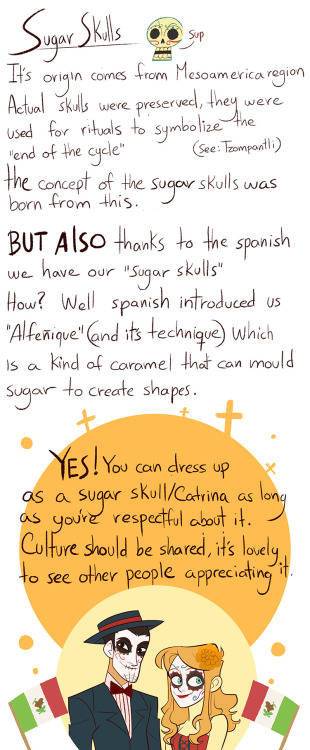 Sugar Skulls
Sup
It's origin comes from Mesoamerica region
Actual skulls were preserved, they were
used for rituals to symbolize the
"end of the cycle" (see: Tzompantli)
the concept of the sugar skulls was
born from this.
BUT AlSO thanks to the spanish
we have our "Sugar skulls"
How? Well spanish introduced us
"Alfeñique" (and it's technique) Which
is a kind of caramel that can mould
sugar to create shapes.
YES! You can dress up
as a sugar skull/Catrina as long
as you're respectful about it.
Culture should be shared, it's lovely
to see other people appreciating it.